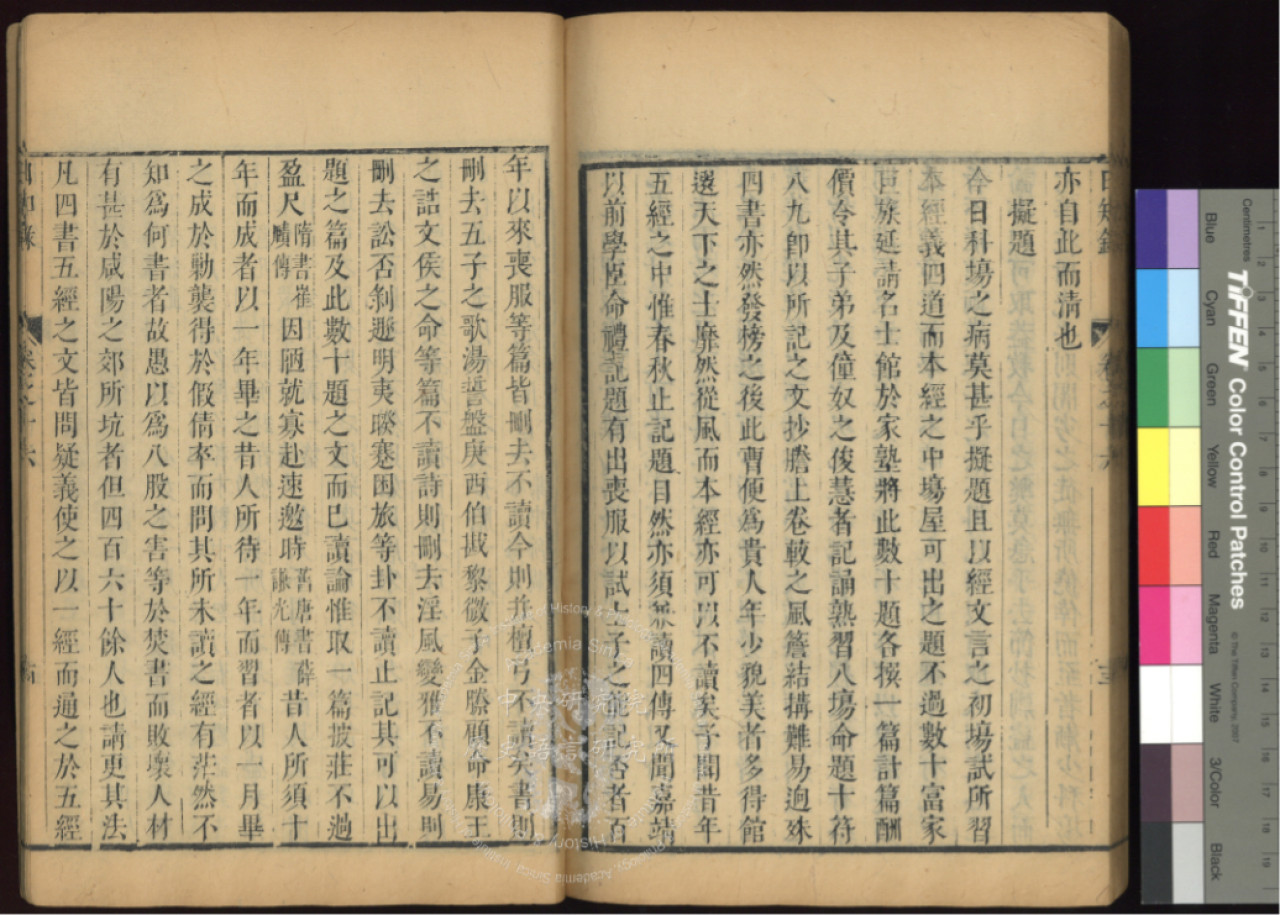 日知錄 卷之十六
亦自此而清也
擬題
今日科場之病莫甚乎擬題且以經文言之初場試所習
本經義四道而本經之中場屋可出之題不過數十富家
巨族延請名士館於家塾將此數十題各撰一篇計篇酬
價令其子弟及僮奴之俊慧者記誦熟習入場命題十符
八九卽以所記之文抄謄上卷較之風簷結搆難易逈殊
四書亦然發榜之後此曹便爲貴人年少貌美者多得館
選天下之士靡然從風而本經亦可以不讀矣予聞昔年
五經之中惟春秋止記題目然亦須兼讀四傳又聞嘉靖
以前學臣命禮記題有出喪服以試士子之能記否者百
年以來喪服等篇皆刪去不讀今則并檀弓不讀矣書則
刪去五子之歌湯誓盤庚西伯戡黎微子金縢顧命康王
之誥文侯之命等篇不讀詩則刪去淫風變雅不讀易則
刪去訟否剝遯明夷睽蹇困旅等卦不讀止記其可以出
題之篇及此數十題之文而已讀論惟取一篇披莊不過
盈尺隋書崔賾傳因陋就寡赴速邀時舊唐書薛謙光傳昔人所須十
年而成者以一年畢之昔人所待一年而習者以一月畢
之成於勦襲得於假倩卒而問其所未讀之經有茫然不
知爲何書者故愚以爲八股之害等於焚書而敗壞人材
有甚於咸陽之郊所坑者但四百六十餘人也請更其法
凡四書五經之文皆問疑義使之以一經而通之於五經
日知錄 卷之十六
中央研究院
歷史語言研究所
Centimetres
TIFFEN Color Control Patches
© The Tiffen Company, 2007
Blue Cyan Green Yellow Red Magenta White 3/Color Black
1 2 3 4 5 6 7 8 9 10 11 12 13 14 15 16 17 18 19